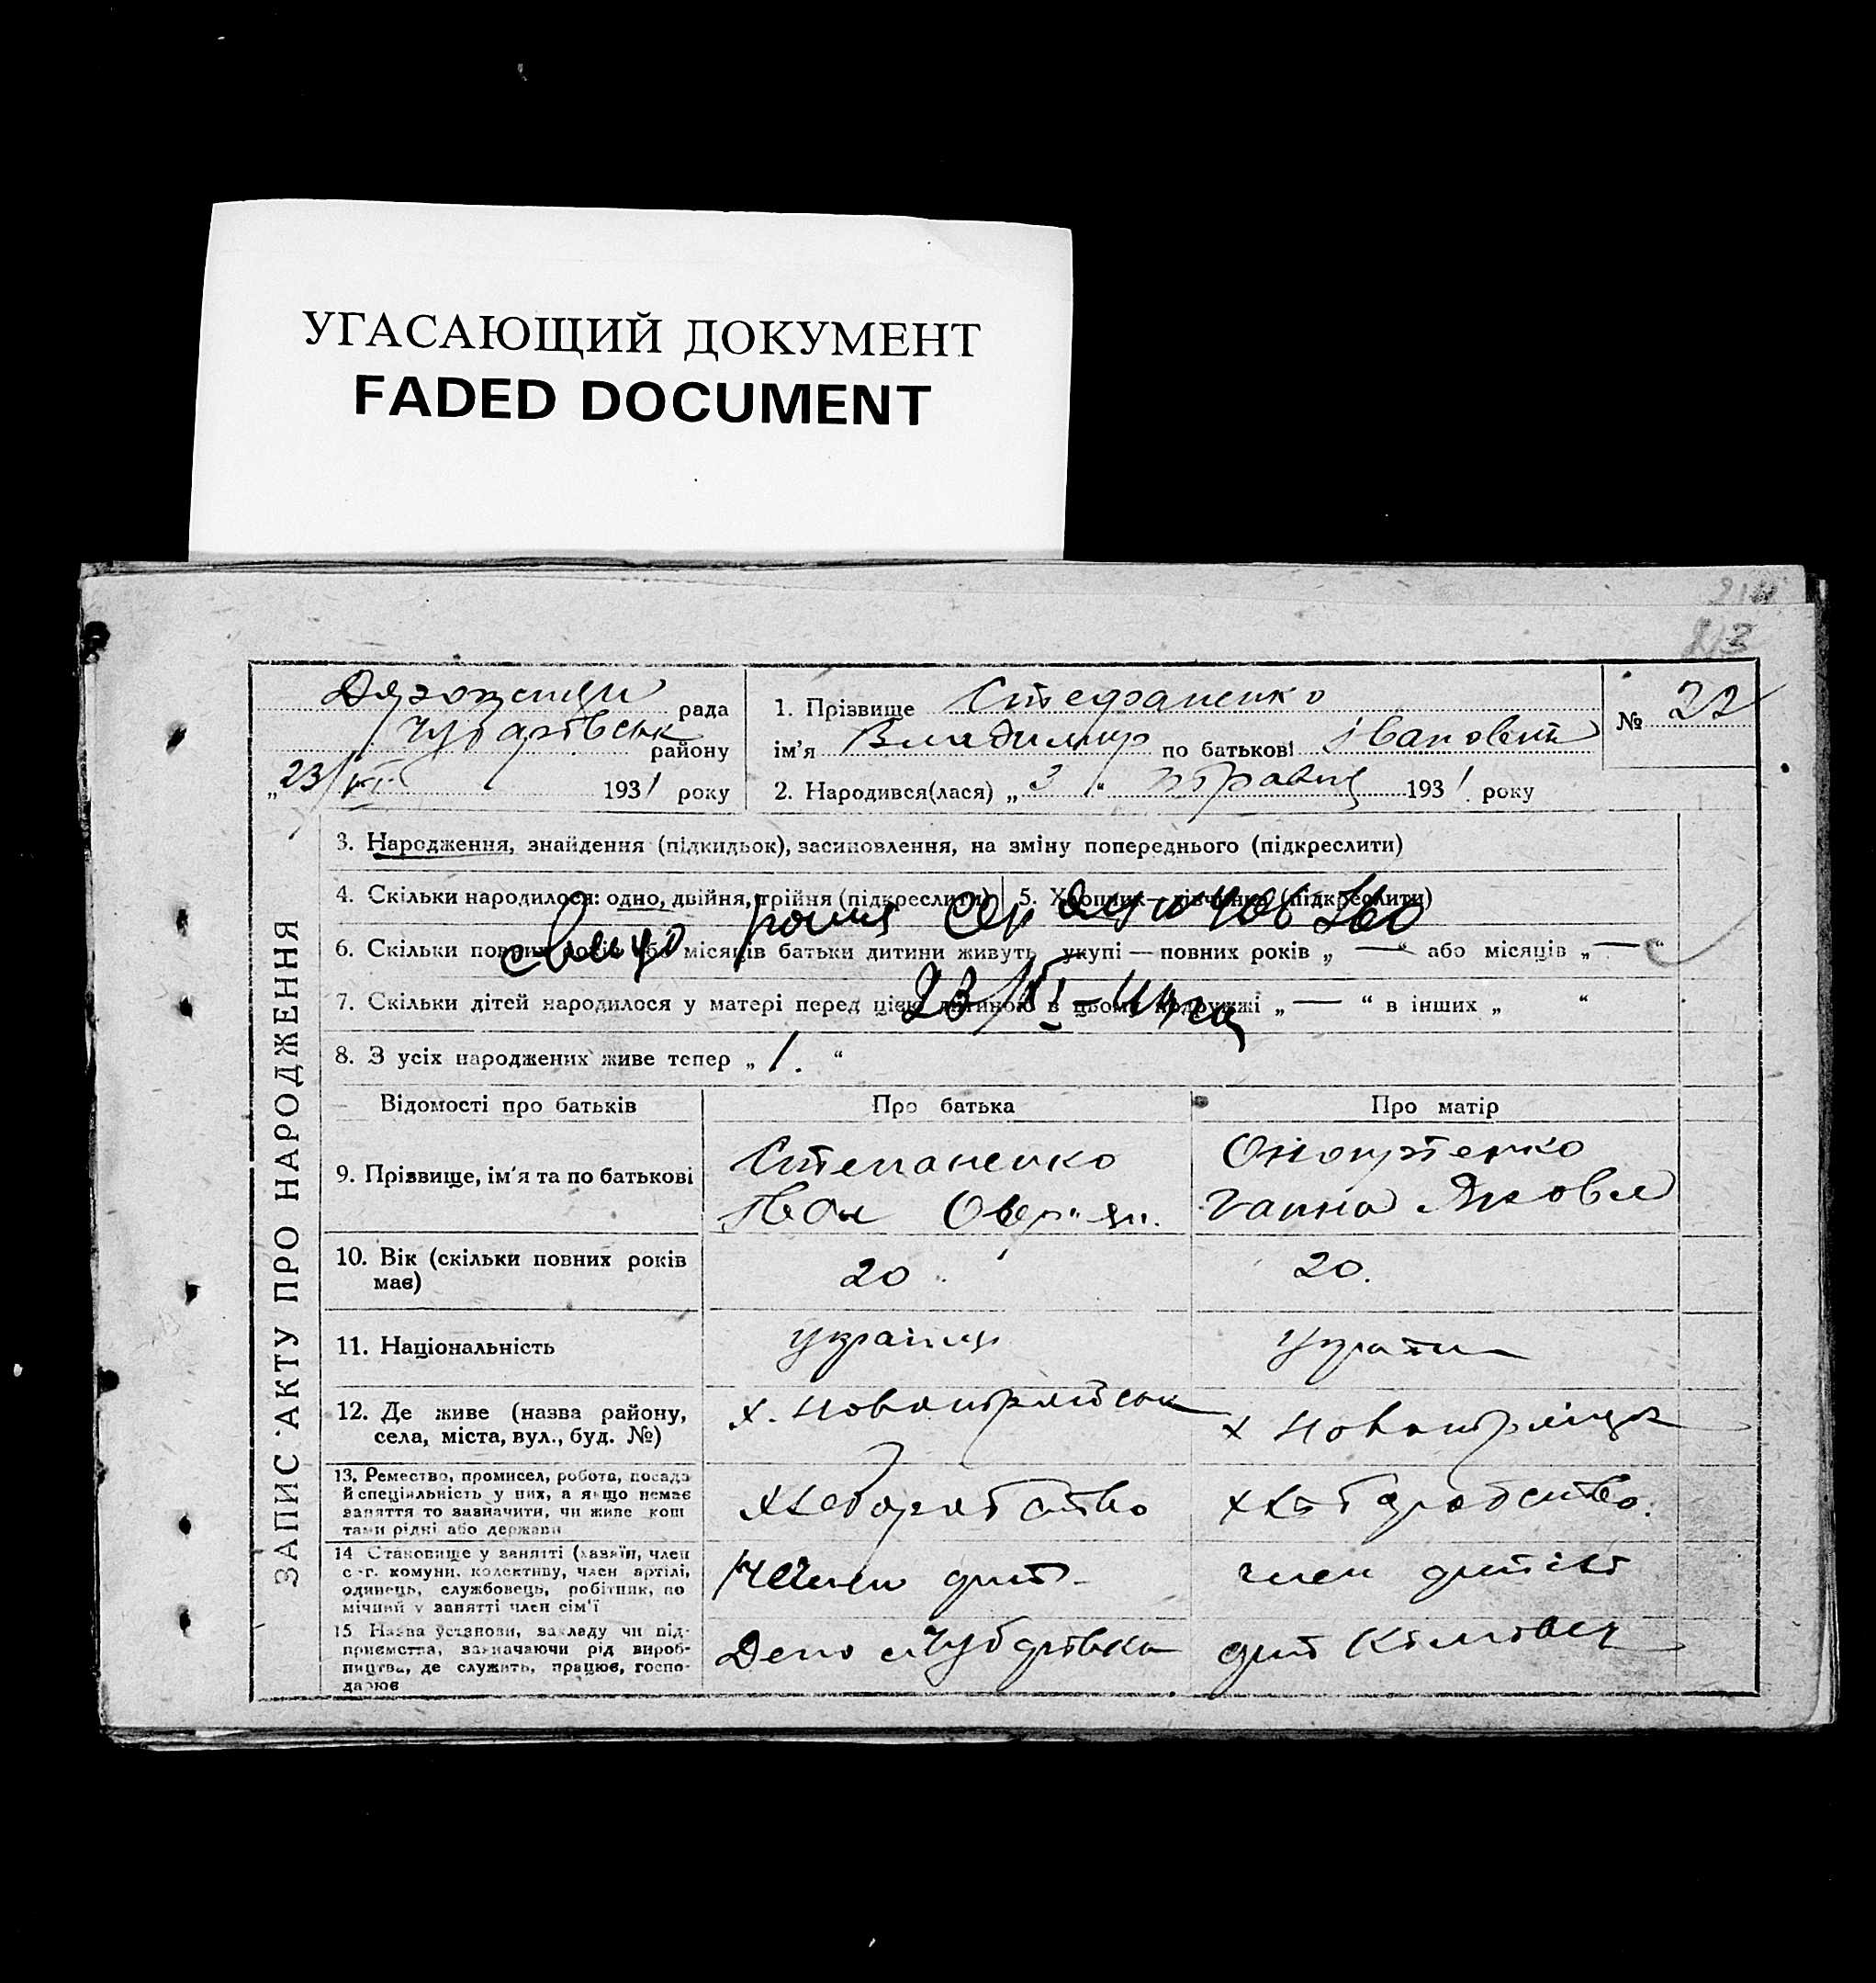 УГАСАЮЩИЙ ДОКУМЕНТ
FADED DOCUMENT
213
ЗАПИС АКТУ ПРО НАРОДЖЕННЯ
рада
Чубарівськ району
„23/XI 1931 року
1. Прізвище Стефаненко
ім'я Владимир по батькові Івановичь
№ 22
2. Народився(лася) „3“ травня 1931 року
3. Народження, знайдення (підкидьок), засиновлення, на зміну попереднього (підкреслити)
4. Скільки народилося: одно, двійня, трійня (підкреслити)
5. Хлопчик — дівчинка (підкреслити)
6. Скільки повних років або місяців батьки дитини живуть укупі — повних років „ — “ або місяців „ — “
7. Скільки дітей народилося у матері перед цією дитиною в цьому подружжі „ — “ в інших „ “
23/XI-44
8. З усіх народжених живе тепер „ 1. “
Відомості про батьків
Про батька
Про матір
9. Прізвище, ім'я та по батькові
Степаненко
Іван
Ганна Яковл
10. Вік (скільки повних років має)
20
20.
11. Національність
українц
україн
12. Де живе (назва району, села, міста, вул., буд. №)
х.
х
13. Ремество, промисел, робота, посада й спеціяльність у них, а якщо немає заняття то зазначити, чи живе кош тами рідні або держави
хлеборобство
хлеборобство.
14 Становище у занятті (хазяїн, член с-г. комуни, колективу, член артілі, одинець, службовець, робітник, по мічний у занятті член сім'ї
член арт-
член артілі
15 Назва установи, закладу чи під-приємства, зазначаючи рід вироб-ництва, де служить, працює, госпо-дарює
Депо Чубарівка
арт